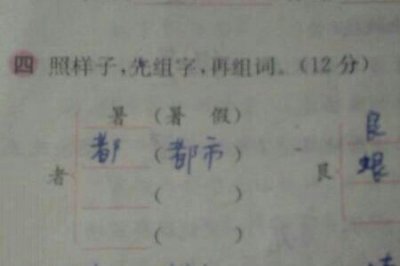 四 照样子,先组字,再组词。(12分)
暑 (暑 假)
都 (都市)
者
( )
( )
艮
艰